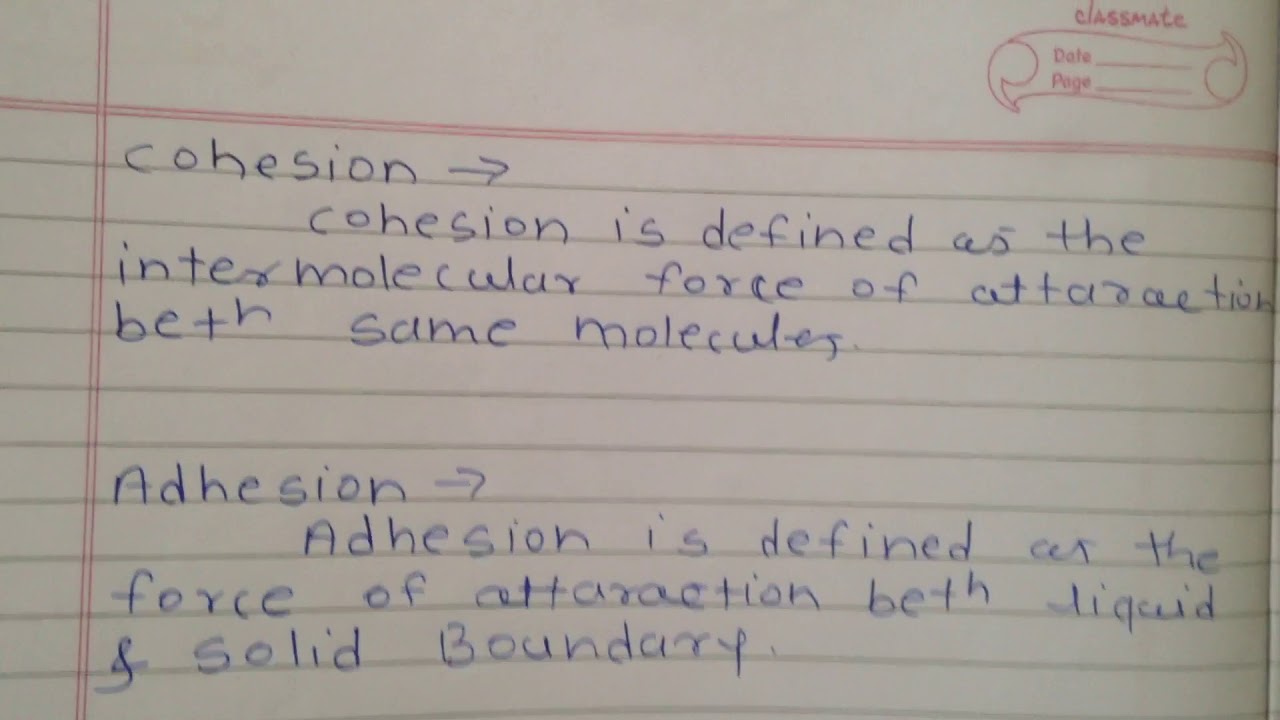 classmate
Date
Page
Cohesion →
Cohesion is defined as the
intermolecular force of attaraction
beth same molecules.
Adhesion →
Adhesion is defined as the
force of attaraction beth liquid
& solid Boundary.